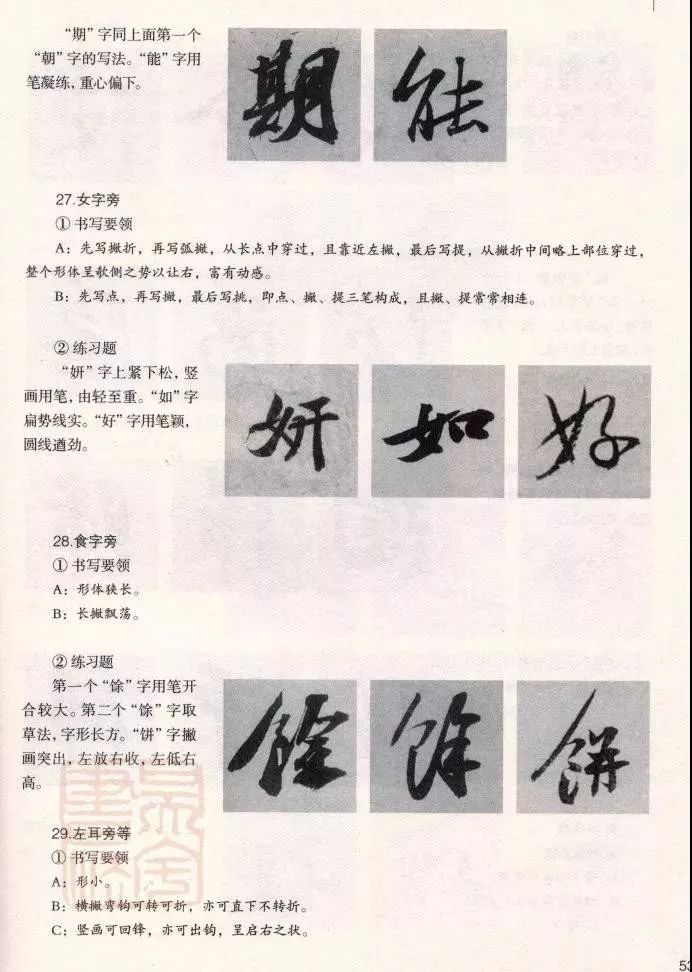 “期”字同上面第一个
“朝”字的写法。“能”字用
笔凝练，重心偏下。
期 能
27.女字旁
① 书写要领
A：先写撇折，再写弧撇，从长点中穿过，且靠近左撇，最后写提，从撇折中间略上部位穿过，
整个形体呈欹侧之势以让右，富有动感。
B：先写点，再写撇，最后写挑，即点、撇、提三笔构成，且撇、提常常相连。
② 练习题
“妍”字上紧下松，竖
画用笔，由轻至重。“如”字
扁势线实。“好”字用笔颖，
圆线遒劲。
妍 如 好
28.食字旁
① 书写要领
A：形体狭长。
B：长撇飘荡。
② 练习题
第一个“馀”字用笔开
合较大。第二个“馀”字取
草法，字形长方。“饼”字撇
画突出，左放右收，左低右
高。
馀 馀 餠
29.左耳旁等
① 书写要领
A：形小。
B：横撇弯钩可转可折，亦可直下不转折。
C：竖画可回锋，亦可出钩，呈启右之状。